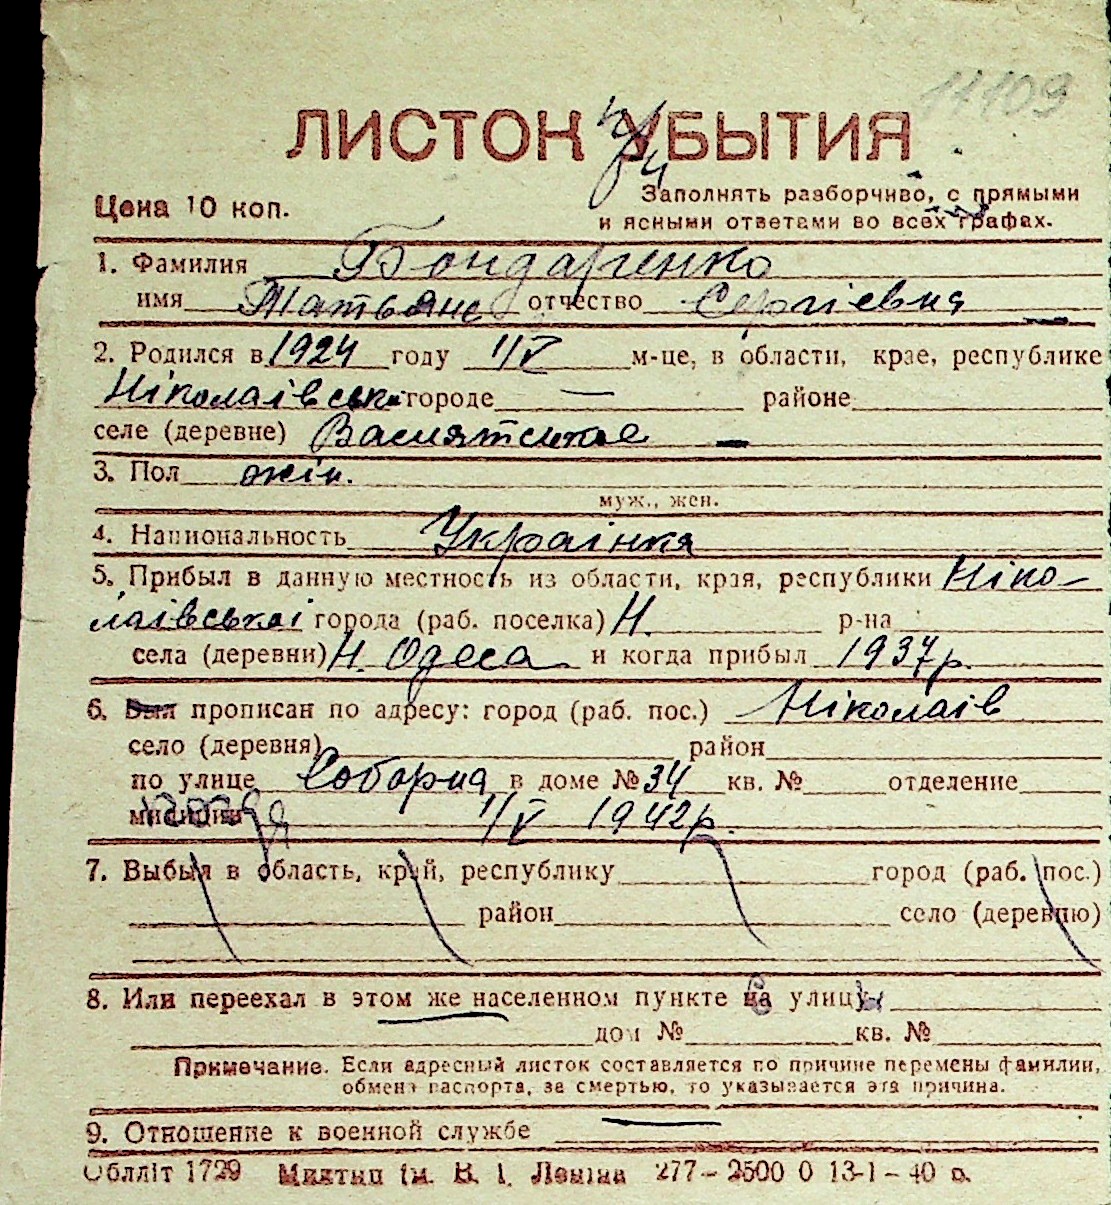 11109
ЛИСТОК УБЫТИЯ
при
Цена 10 коп.
Заполнять разборчиво, с прямыми
и ясными ответами во всех графах.
1. Фамилия Бондаренко
имя Татьяна отчество Сергіевна
2. Родился в 1924 году 1/V м-це, в области, крае, республике
Ніколаівськ городе — районе
селе (деревне) —
3. Пол жін.
муж., жен.
4. Национальность Украінка
5. Прибыл в данную местность из области, края, республики Ніко-
лаівськоі города (раб. поселка) Н. р-на
села (деревни) Н. Одеса и когда прибыл 1937 р.
6. Был прописан по адресу: город (раб. пос.) Ніколаів
село (деревня) район
по улице Соборна в доме № 34 кв. № отделение
милиции 1/V 1942 р.
7. Выбыл в область, край, республику город (раб. пос.)
район село (деревню)
8. Или переехал в этом же населенном пункте на улицу
дом № кв. №
Примечание. Если адресный листок составляется по причине перемены фамилии,
обмена паспорта, за смертью, то указывается эта причина.
9. Отношение к военной службе —
Облліт 1729 Миктип ім. В. І. Леніна 277—2500 0 13-1-40 р.